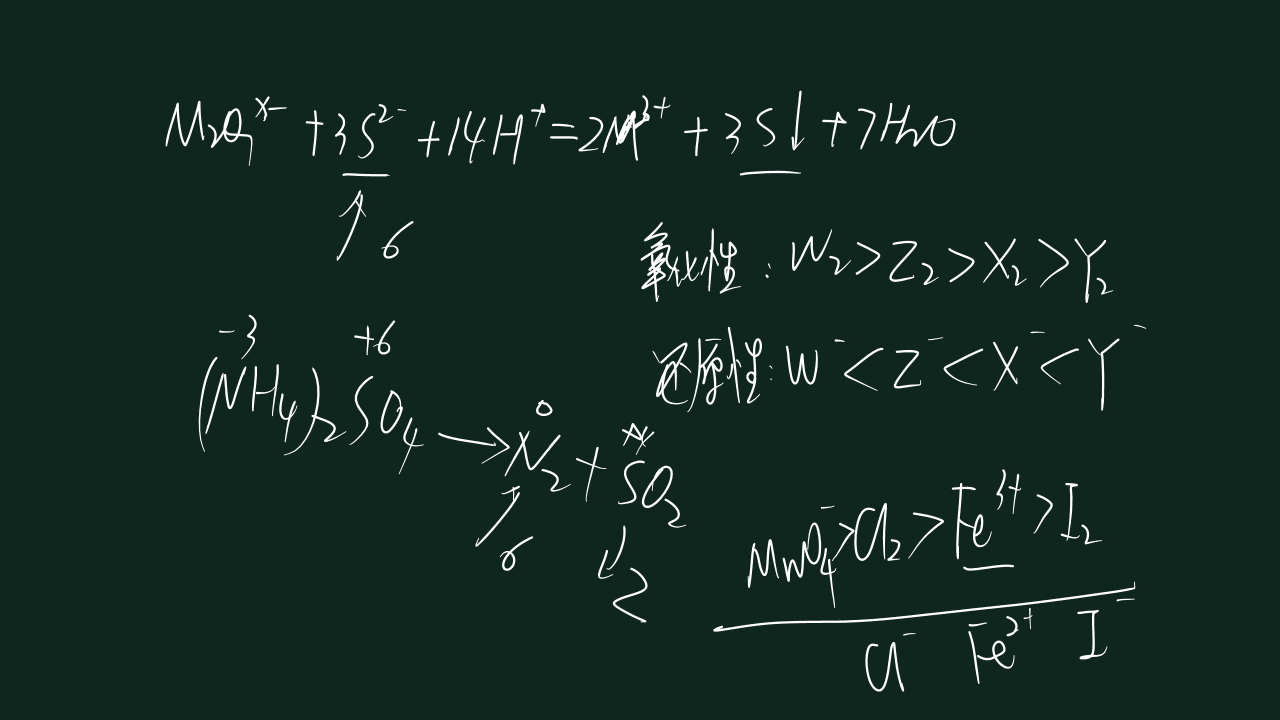 M₂O₇ˣ⁻ + 3S²⁻ + 14H⁺ = 2M³⁺ + 3S↓ + 7H₂O
↑ 6
氧化性: W₂ > Z₂ > X₂ > Y₂
还原性: W⁻ < Z⁻ < X⁻ < Y⁻
-3 +6
(NH₄)₂SO₄ → N₂ + SO₂
0
↑ 6
↓ 2
MnO₄⁻ > Cl₂ > Fe³⁺ > I₂
Cl⁻ Fe²⁺ I⁻